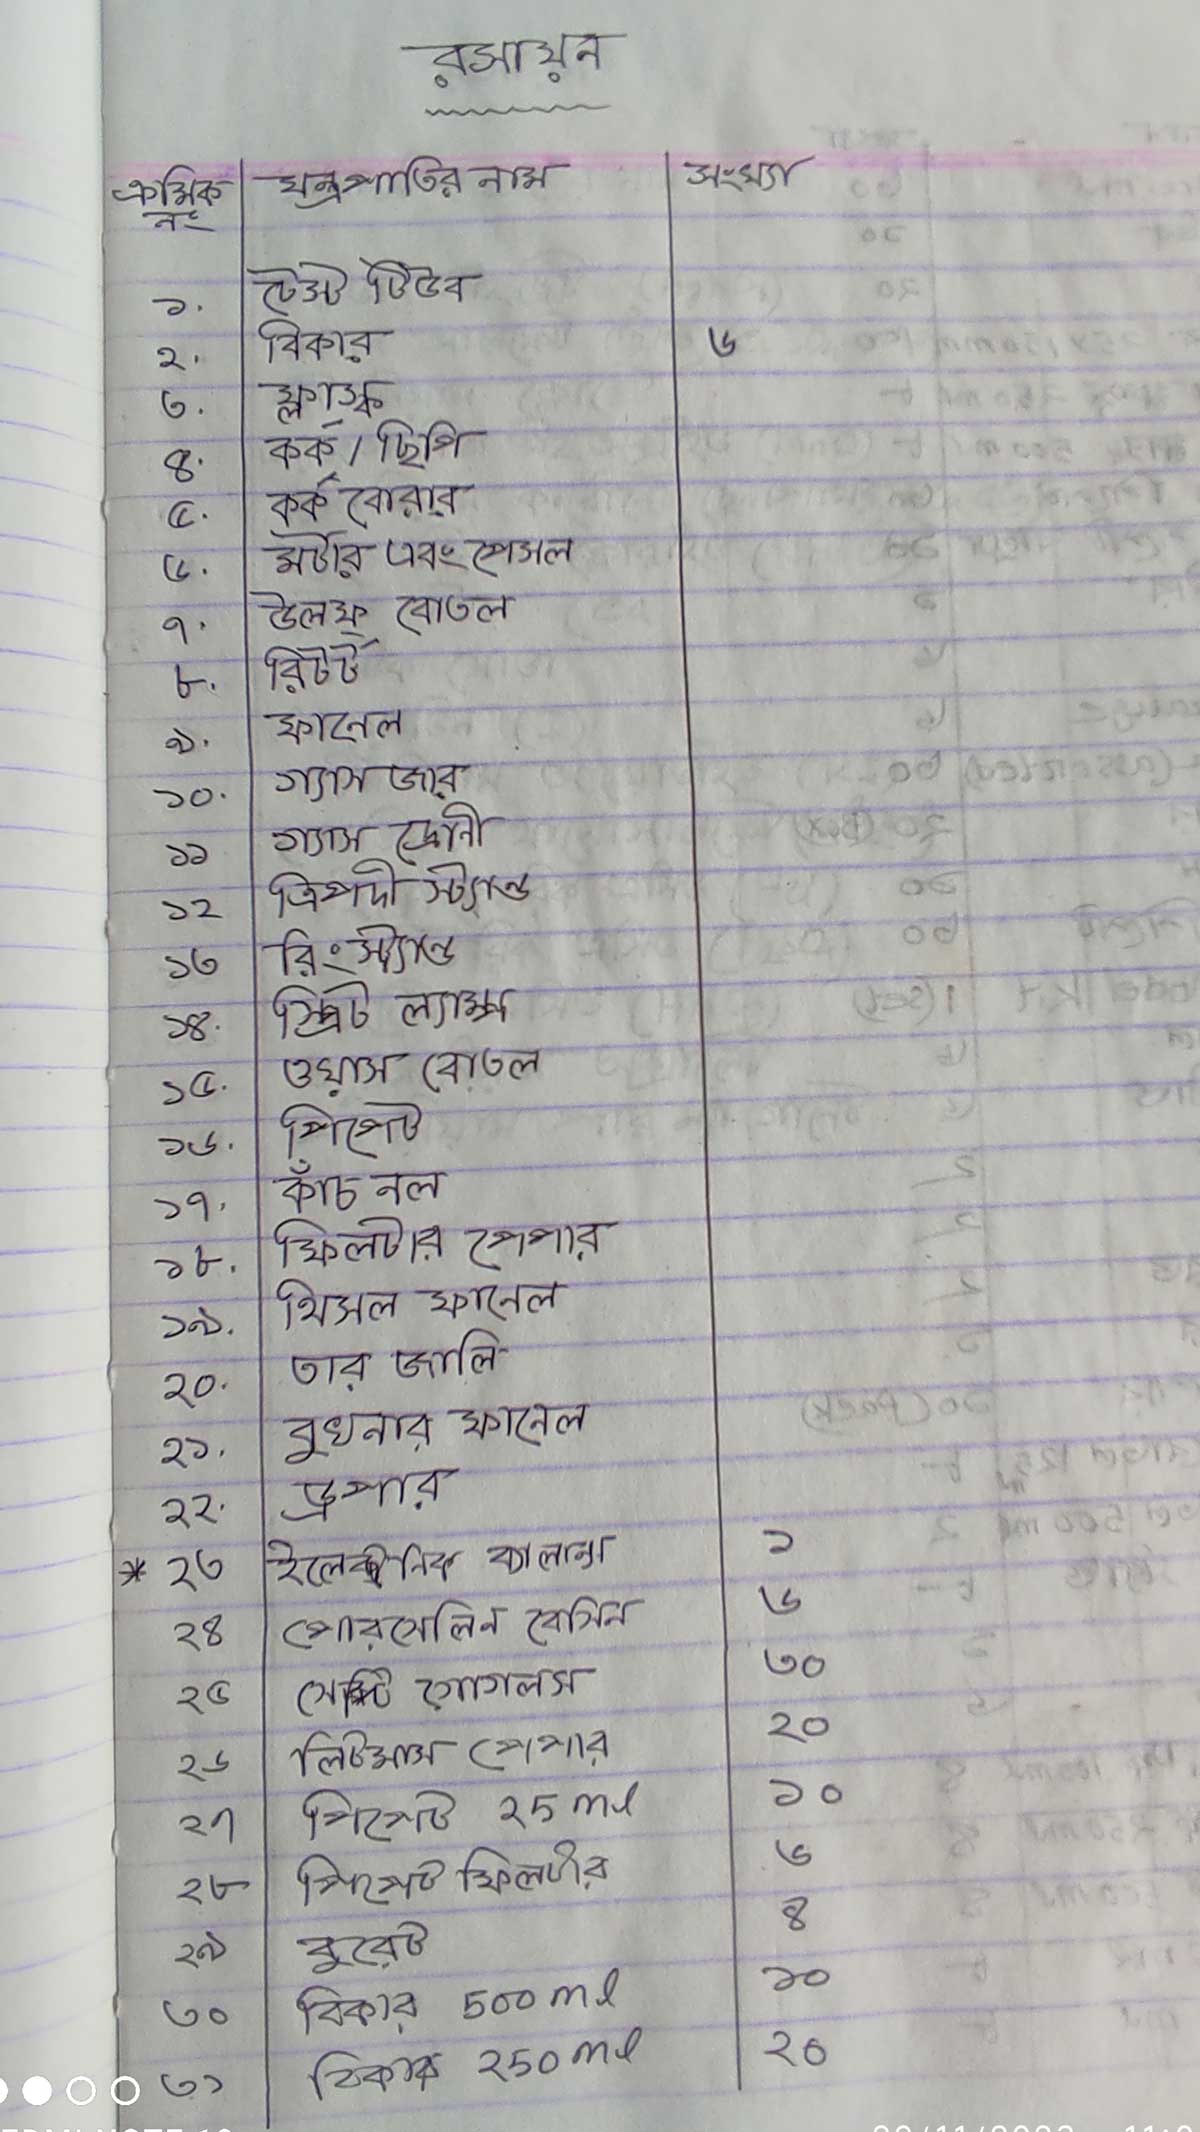 রসায়ন
ক্রমিক নং যন্ত্রপাতির নাম সংখ্যা
১. টেস্ট টিউব
২. বিকার ৬
৩. ফ্লাস্ক
৪. কর্ক / ছিপি
৫. কর্ক বোরার
৬. মর্টার এবং পেসল
৭. উলফ্ বোতল
৮. রিটর্ট
৯. ফানেল
১০. গ্যাস জার
১১ গ্যাস দ্রোনী
১২ ত্রিপদী স্ট্যান্ড
১৩ রিং স্ট্যান্ড
১৪. স্প্রিট ল্যাম্প
১৫. ওয়াস বোতল
১৬. পিপেট
১৭. কাঁচ নল
১৮. ফিলটার পেপার
১৯. থিসল ফানেল
২০. তার জালি
২১. বুখনার ফানেল
২২. ড্রপার
* ২৩ ইলেকট্রনিক ব্যালান্স ১
২৪ পোরসেলিন বেসিন ৬
২৫ সেফটি গোগলস ৩০
২৬ লিটমাস পেপার ২০
২৭ পিপেট ২5 ml ১০
২৮ পিপেট ফিলটার ৬
২৯ বুরেট ৪
৩০ বিকার 500 ml ১০
৩১ বিকার ২50 ml ২০